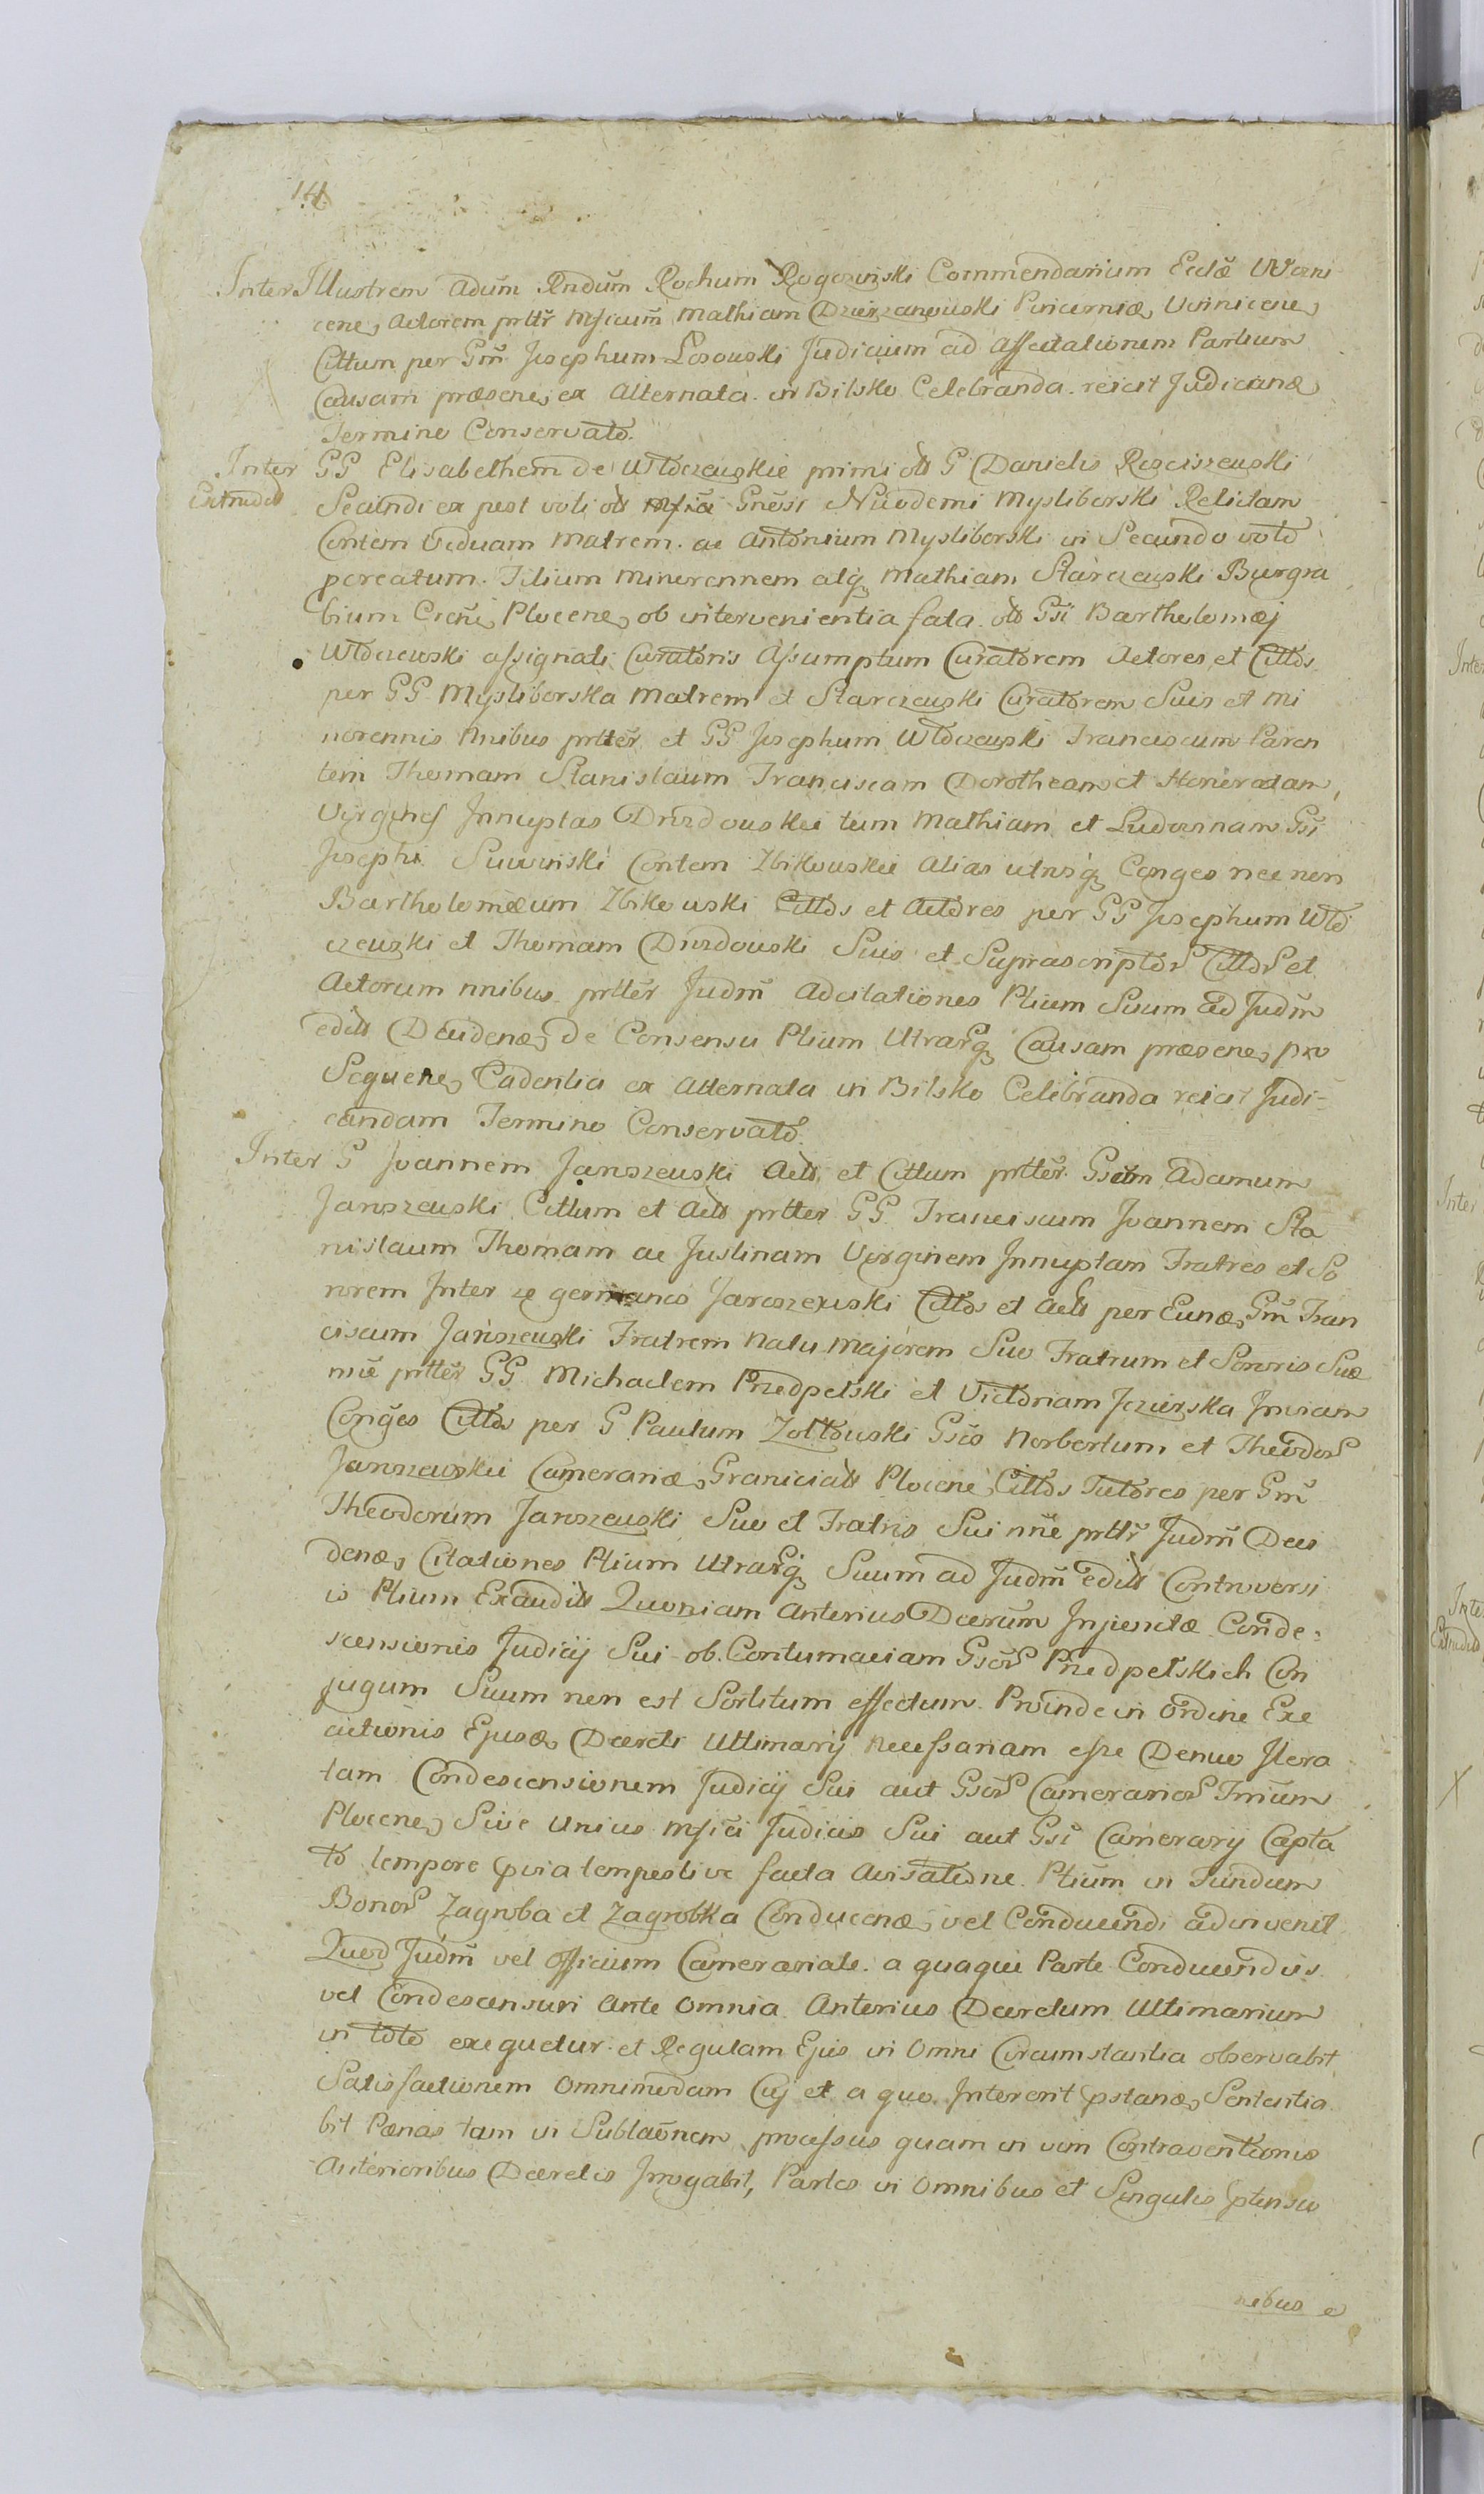 141.
Inter Illustrem Adum Rndum Rochum Rogozinski Commendarium Eccłæ
cenę Actorem prttr Mficum Mathiam Dzierzanowski Pincernię
Cittum per Gm Josephum Losowski Judicium ad Affectationem Partium
Causam præsenę ex Alternata in Bilsko Celebranda reicit Judicianę
Termino Conservato.
Inter GG Elisabetham de Włoczewskie primi Danielis Rosciszewski
Secundi ex post voti Mfici Gnesi Nicodemi Mysliborski Relictam
Contem Viduam Matrem ac Antonium Mysliborski in Secundo voto
procreatum Filium Minorennem atq Mathiam Starczewski Burgra
bium Plocenę ob intervenientia fata Gsi Bartholomæj
Włoczewski assignati Curatoris Assumptum Curatorem Actores et Cittos
per GG Mysliborska Matrem et Starczewski Curatorem Suis et Mi
norennis nnibus prtter et GG Josephum Włoczewski Franciscum Paren
tem Thomam Stanislaum Franciscam Dorotheam et Honoratam
Virgines Innuptas Drozdowskie tum Mathiam et Ludovicam Gsi
Josephi Suwinski Contem Zbikowskie Alias utriusq Conges nec non
Bartholomæum Zbikowski Cittos et Actores per GG Josephum Wło
czewski et Thomam Drozdowski Suis et Suprascriptor Cittor et
Actorum nnibus prtter Judm Adcitationes Ptium Suum ad Judm
Decidenę de Consensu Ptium Utrarq Causam præsenę pro
Sequenę Cadentia ex Alternata in Bilsko Celebranda reicit Judi-
candam Termino Conservato.
Inter G Joannem Jaroszewski et Cittum prtter Gsum Adamum
Jaroszewski Cittum et prtter GG Franciscum Joannem Sta
nislaum Thomam ac Justinam Virginem Innuptam Fratres et So
rorem Inter se germanos Jaroszewski Cittos et per Eundę Gm Fran
ciscum Jaroszewski Fratrem Natu Majorem Suo Fratrum et Sororis Suæ
nnie prtter GG Michaelem Przedpelski et Victoriam Jezierska
Conges Cittos per G Paulum Zołtowski Gsos Norbertum et Theodor
Jaroszewskie Camerarię Granicial Plocenę Cittos Tutores per Gm
Theodorum Jaroszewski Suo et Fratris Sui nne prttr Judm Deci
denę Citationes Ptium Utrarq Suum ad Judm Controversi
is Ptium Quoniam Anterius Decretum Injunctæ Conde-
scensionis Judicij Sui ob Contumaciam Gsor Przedpelskich Con
jugum Suum non est Sortitum effectum Proinde in Ordine Exe
cutionis Ejusdę Decreti Ultimarij necessariam esse Denuo Itera
tam Condescensionem Judicij Sui aut Gsor Camerarior Trium
Plocenę Sive Unius Mfici Judicis Sui aut Gsi Camerarij Capta
to tempore tempestive facta Avisatione Ptium in Fundum
Bonor Zagroba et Zagrobka Conducenę vel Conducendi adinvenit
Quod Judm vel Officium Cameræriale a quaque Parte Conducendus
vel Condescensuri Ante Omnia Anterius Decretum Ultimarium
in toto exequetur et Regulam Ejus in Omni Circumstantia observabit
Satisfactionem Omnimodam Cuj et a quo Intererit pstanę Sententia
bit Pænas tam in Sublaonem processus quam in vim Contraventionis
Anterioribus Decretis Irrogabit, Partes in Omnibus et Singulis ptensio
nibus